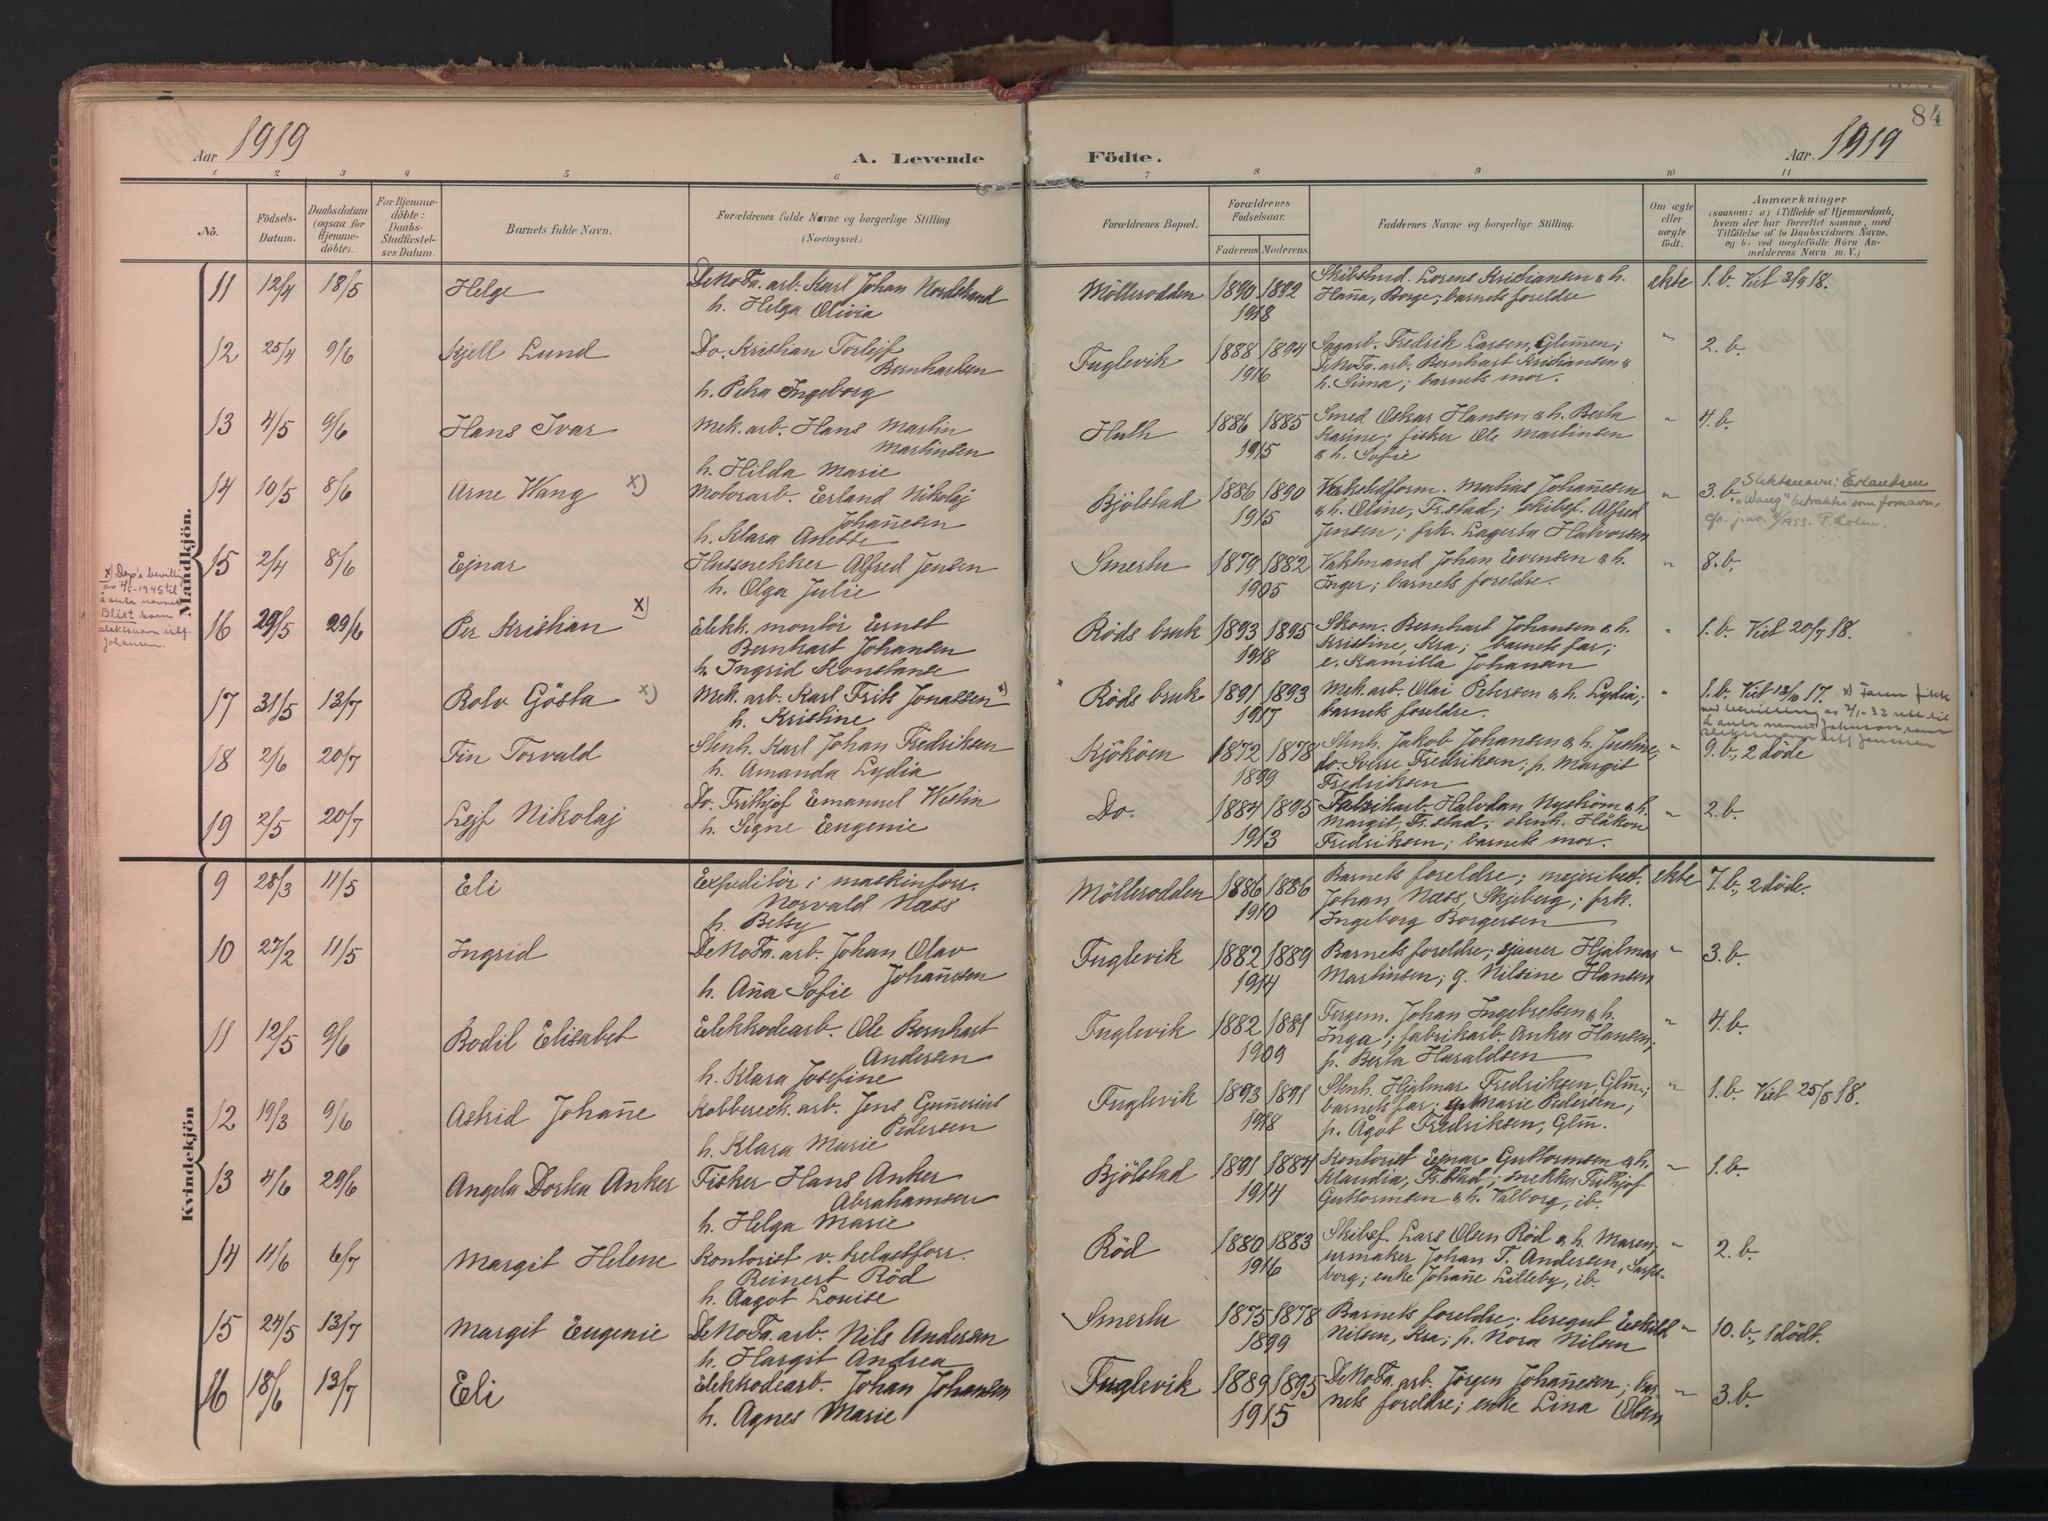 84
Aar 1919
A. Levende Födte.
Aar 1919
1 2 3 4 5 6 7 8 9 10 11
No.
Födsels-
Datum.
Daabsdatum
(ogsaa for
Hjemme-
döbte).
For Hjemme-
döbte:
Daabs-
Stadfæstel-
ses Datum.
Barnets fulde Navn.
Forældrenes fulde Navne og borgerlige Stilling
(Næringsvei.)
Forældrenes Bopæl.
Forældrenes
Födselsaar.
Faderens Moderens.
Faddernes Navne og borgerlige Stilling.
Om ægte
eller
uægte
födt.
Anmærkninger
(saasom: a) i Tilfælde af Hjemmedaab,
hvem der har forrettet samme, med
Tilföielse af to Daabsvidners Navne,
og b) ved uægtefödte Börn An-
melderens Navn m. V.)
Mandkjön.
11 12/4 18/5 Helge DeNoFa. arb. Karl Johan Nordstrand Möllerodden 1890 1892 Skibstmd. Lorens Kristiansen & h. ekte 1. b. Viet 3/9 18.
h. Helga Olivia 1918 Hanna, Borge; barnets foreldre
12 25/4 9/6 Kjell Lund Do. Kristian Torlejf Fuglevik 1888 1894 Sagarb. Fredrik Larsen, Glmmen; " 2. b.
Bernhartsen 1916 DeNoFa. arb. Bernhart Kristiansen &
h. Petra Ingeborg h. Sima; barnets mor.
13 4/5 9/6 Hans Ivar Mek. arb. Hans Martin Huth 1886 1885 Smed Oskar Hansen & h. Berta " 4. b.
Martinsen 1915 Karine; fisker Ole Martinsen
h. Hilda Marie & h. Sofie
14 10/5 8/6 Arne Wang x) Motorarb. Erland Nikolaj Bjölstad 1886 1890 Verkstedform. Matias Johannesen " 3. b. Slektsnavn: Erlandsen
Johannesen 1915 & h. Oline, Fr.stad; skibsf. Alfred "Wang" betraktes som fornavn,
h. Klara Anette Jensen; frk. Lagerta Halvorsen
15 2/4 8/6 Ejnar Hussnekker Alfred Jensen Smertu 1879 1882 Vaktmand Johan Evensen & h. " 8. b.
h. Olga Julie 1905 Inger; barnets foreldre.
x) Dep's bevilling
av 4/5-1945 til
å anta navnet
Blixt som
slektsnavn istf.
Johansen.
16 29/5 29/6 Per Kristian x) Elektr. montör Ernst Röds bruk 1893 1895 Skom. Bernhart Johansen & h. " 1. b. Viet 20/7 18.
Bernhart Johansen 1918 Kristine, Kra; barnets far;
h. Ingrid Konstanse e. Kamilla Johansen
17 31/5 13/7 Rolv Gösta x) Mek. arb. Karl Frits Jonassen x) Röds bruk 1891 1893 Mek. arb. Olai Petersen & h. Lydia; " 1. b. Viet 13/10 17. x) Faren fikk
h. Kristine 1917 barnets foreldre. ved bevilling av 7/1-32 rett til
å anta navnet Johnson som
slektsnavn istf. Jonassen
18 2/6 20/7 Fin Torvald Stenh. Karl Johan Fredriksen Kjököen 1872 1878 Stenh. Jakob Johansen & h. Justine; " 9. b., 2 döde
h. Amanda Lydia 1899 do. Sverre Fredriksen; p. Margit
Fredriksen
19 2/5 20/7 Lejf Nikolaj Do. Frithjof Emanuel Westin Do. 1884 1895 Fabrikarb. Halvdan Nyström & h. " 2. b.
h. Signe Eugenie 1913 Margit, Fr.stad; stenh. Håkon
Fredriksen; barnets mor.
Kvindekjön
9 28/3 11/5 Eli Expeditör i maskinforr. Möllerodden 1886 1886 Barnets foreldre; mejeribest. ekte 7. b., 2 döde.
Norvald Næss 1910 Johan Næss, Skjeberg; frk.
h. Betsy Ingeborg Borgersen
10 27/2 11/5 Ingrid DeNoFa. arb. Johan Olav Fuglevik 1882 1889 Barnets foreldre; sjauer Hjalmar " 3. b.
Johannesen 1914 Martinsen; g. Nilsine Hansen
h. Anna Sofie
11 12/5 9/6 Bodil Elisabet Elektrodearb. Ole Bernhart Fuglevik 1882 1881 Fergem. Johan Ingebretsen & h. " 4. b.
Andersen 1909 Inga; fabrikarb. Anker Hansen;
h. Klara Josefine p. Berta Haraldsen
12 19/3 9/6 Astrid Johanne Kobberextr. arb. Jens Gunnerius Fuglevik 1893 1891 Stenh. Hjalmar Fredriksen, Glm.; " 1. b. Viet 25/5 18.
Pedersen 1918 barnets far; g. Marie Pedersen;
h. Klara Marie p. Ågot Fredriksen, Glm.
13 4/6 29/6 Angela Dorka Anker Fisker Hans Anker Bjölstad 1891 1884 Kontorist Ejnar Guttormsen & h. " 1. b.
Abrahamsen 1914 Klaudia, Fr.stad; snekker Frithjof
h. Helga Marie Guttormsen & h. Valborg, ib.
14 11/6 6/7 Margit Helene Kontorist v. trelastforr. Röd 1880 1883 Skibsf. Lars Olsen Röd & h. Maren; " 2. b.
Reinert Röd 1916 urmaker Johan T. Andersen, Sarps-
h. Aagot Louise borg; enke Johanne Lilleby, ib.
15 24/5 13/7 Margit Eugenie DeNoFa. arb. Nils Andersen Smertu 1875 1878 Barnets foreldre; leregut Eskild " 10. b., 1 dödt.
h. Hargit Andrea 1899 Nilsen, Kra; p. Nora Nilsen
16 18/6 13/7 Eli Elektrodearb. Johan Johansen Fuglevik 1889 1895 DeNoFa. arb. Jörgen Johannesen; bar- " 3. b.
h. Agnes Marie 1915 nets foreldre; enke Lina Olsen